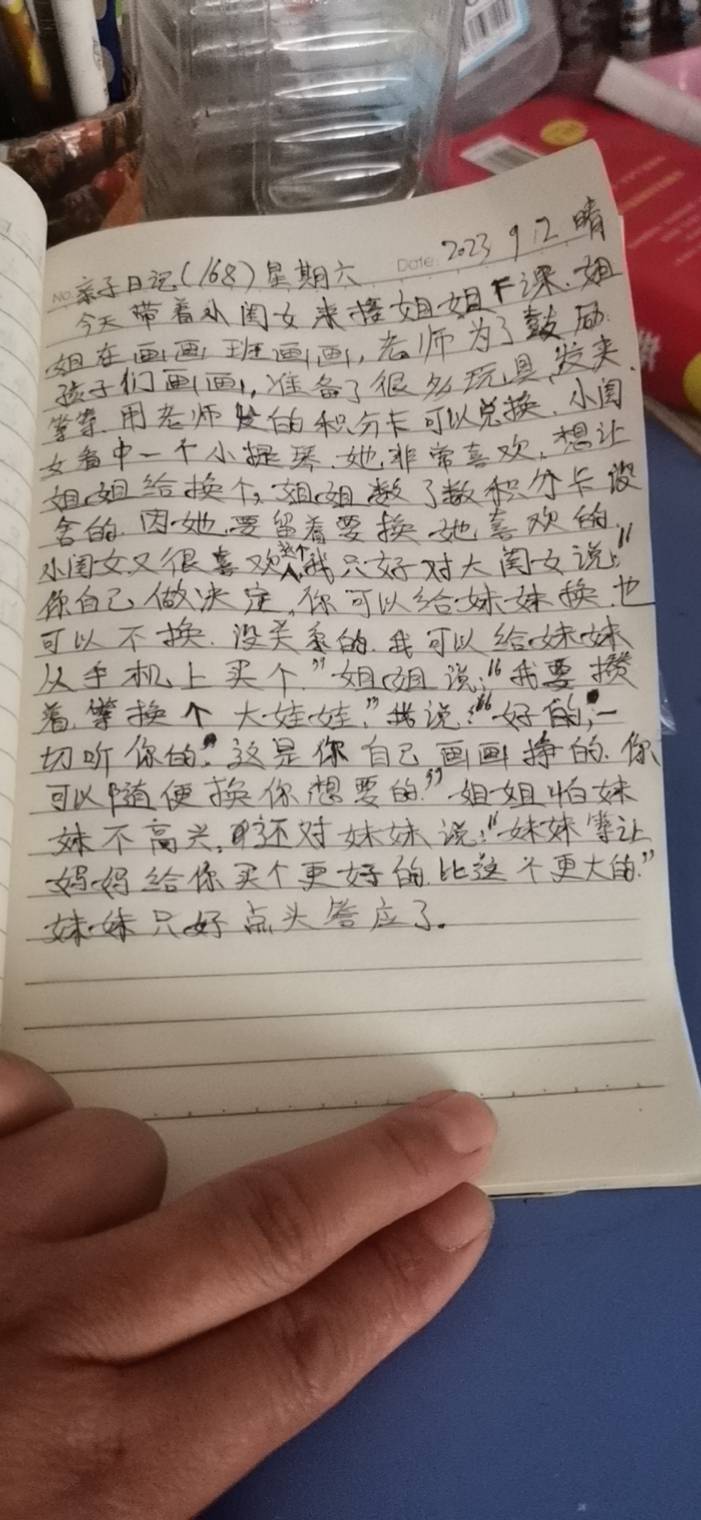 Date: 2023 9.12 晴
No. 亲子日记(168)星期六
今天带着小闺女来接姐姐下课.姐
姐在画画班画画,老师为了鼓励
孩子们画画,准备了很多玩具,发夹.
等等.用老师发的积分卡可以兑换.小闺
女看中一个小提琴.她非常喜欢.想让
姐姐给换个,姐姐数了数积分卡没
舍的.因她要留着要换她喜欢的.
小闺女又很喜欢这个,我只好对大闺女说:"
你自己做决定,你可以给妹妹换.也
可以不换.没关系的.我可以给妹妹
从手机上买个."姐姐说:"我要攒
着.等换个大娃娃."我说:"好的,一
切听你的.这是你自己画画挣的.你
可以随便换你想要的."姐姐怕妹
妹不高兴,还对妹妹说:"妹妹等让
妈妈给你买个更好的.比这个更大的."
妹妹只好点头答应了.